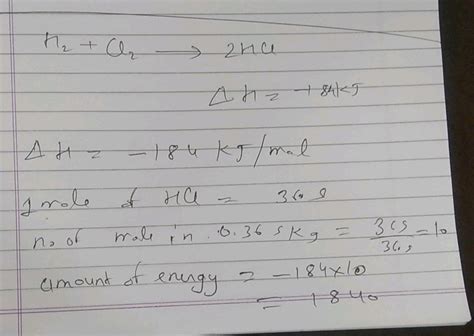 H₂ + Cl₂ → 2HCl
ΔH = -184KJ
ΔH = -184 KJ/mol
1 mole of HCl = 36.5
no of mole in 0.365 Kg = 365/36.5 = 10
amount of energy = -184×10
= 1840